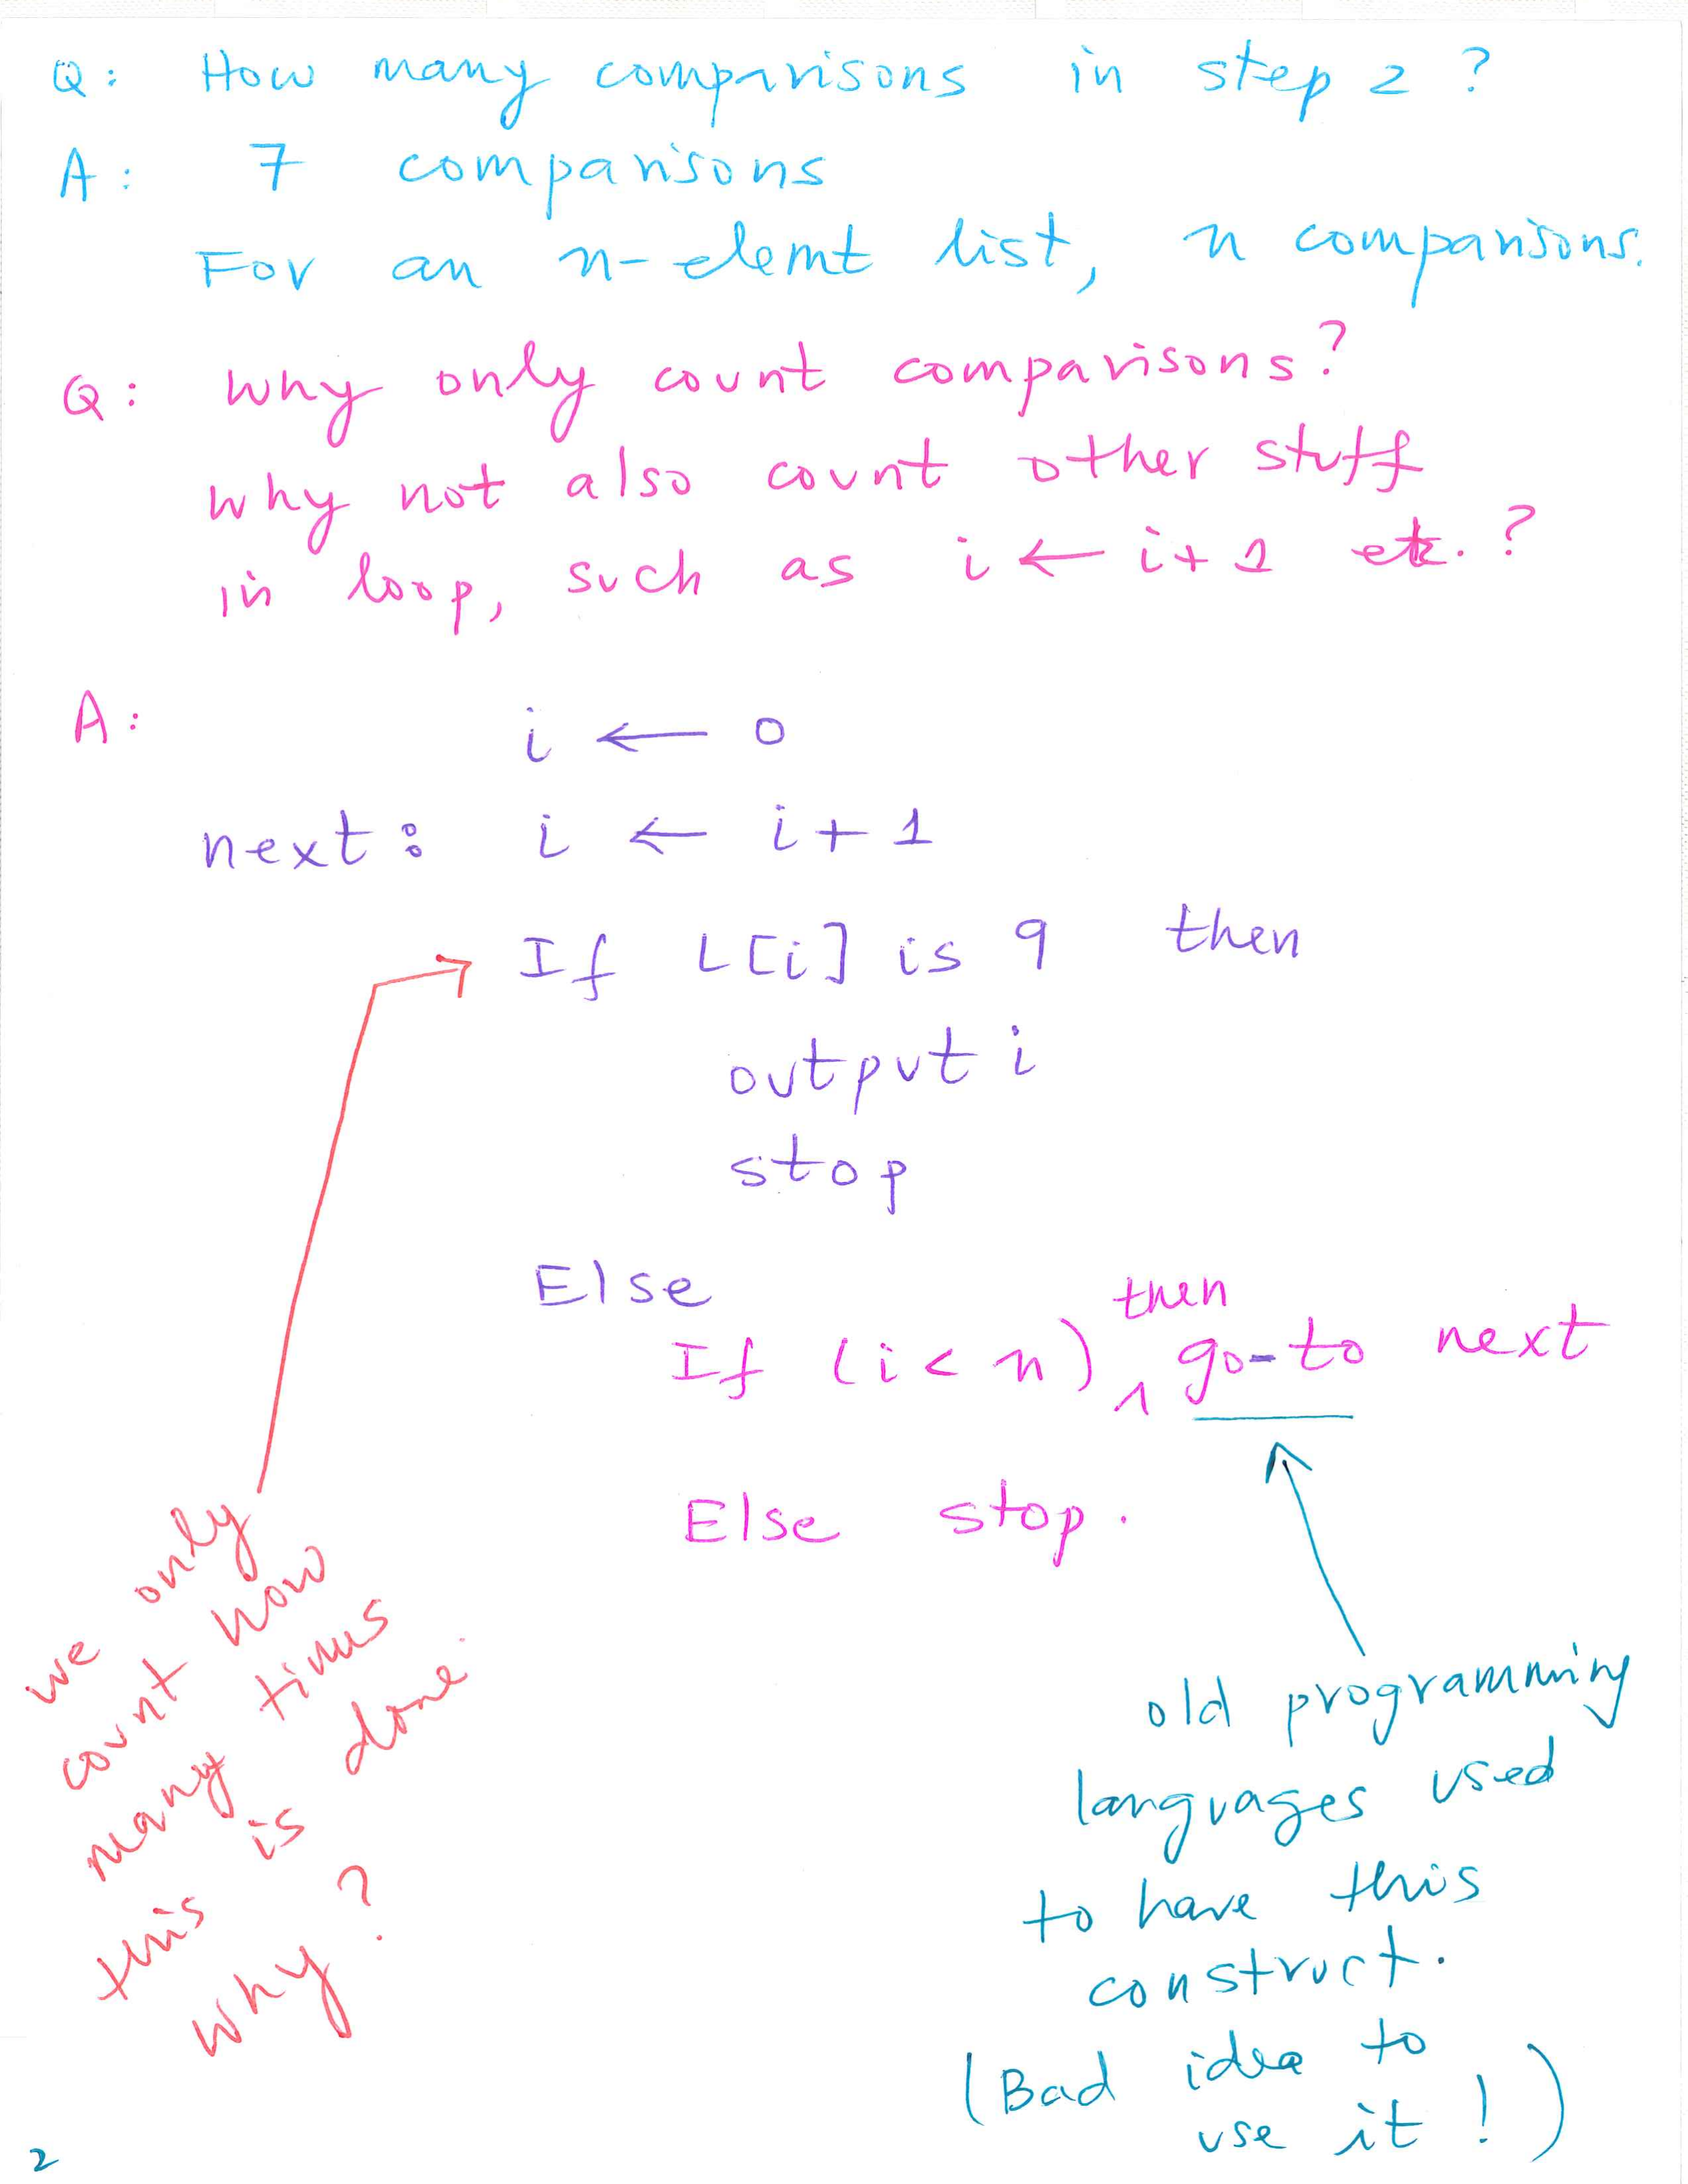 Q: How many comparisons in step 2?
A: 7 comparisons
For an n-elemt list, n comparisons.
Q: why only count comparisons?
why not also count other stuff
in loop, such as i ← i+1 etc.?
A: i ← 0
next: i ← i+1
If L[i] is 9 then
output i
stop
Else
If (i < n) then go-to next
Else stop.
we only
count how
many times
this is done.
Why?
old programming
languages used
to have this
construct.
(Bad idea to
use it!)
2